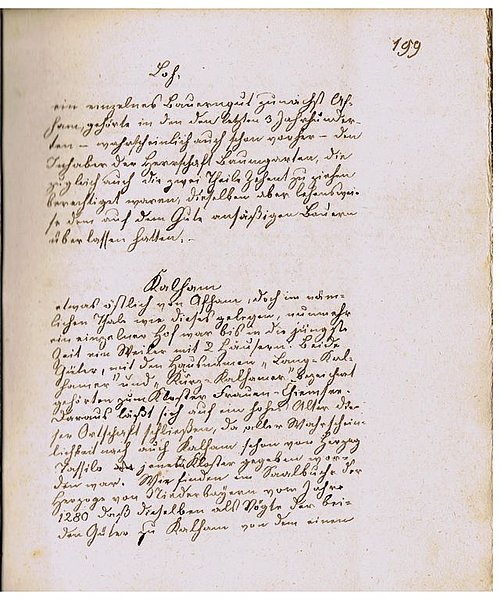 199
Loh.
ein einzelnes Bauerngut zunächst Af-
ham, gehörte in den den letzten 3 Jahrhunder-
ten – wahrscheinlich auch schon vorher – den
Inhaber der Herrschaft Baumgarten, die
zugleich auch die zwei Theile Zehent zu ziehen
berechtiget waren, dieselben aber lehenswei-
se dem auf dem Gute ansäßigen Bauern
überlassen hatten.
Kalham
etwas östlich von Afham, doch im näm-
lichen Thale wie dieses gelegen, nunmehr
ein einzelner Hof war bis in die jüngste
Zeit ein Weiler mit 2 Häusern. Beide
Güter, mit den Hausnamen „Lang-Kal-
hamer" und „Kurz-Kalhamer" bezeichnet
gehörten zum Kloster Frauen-Chiemsee.
Daraus läßt sich auf ein hohes Alter die-
ser Ortschaft schließen, da aller Wahrschein-
lichkeit nach auch Kalham schon von Herzog
Tassilo jenem Kloster gegeben wor-
den war. Wir finden im Saalbuche der
Herzoge von Niederbayern vom Jahre
1280 daß dieselben als Vögte der bei-
den Güter zu Kalham von dem einen